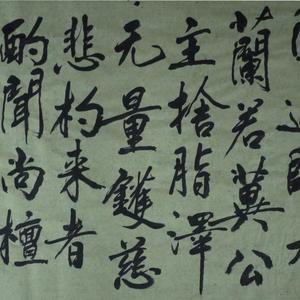 蘭若冀公
主捨脂澤
无量鑊慈
悲杓来者
酌聞尚檀